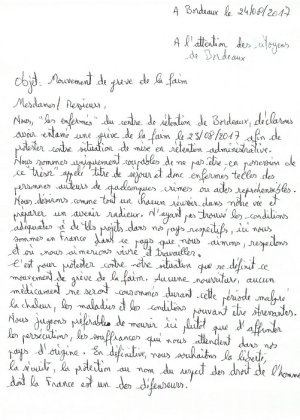 A Bordeaux le 24/08/2017
A l'attention des citoyens
de Bordeaux
Objet: Mouvement de grève de la faim
Mesdames/Messieurs,
Nous "les enfermés" du centre de rétention de Bordeaux, déclarons
avoir entamé une grève de la faim le 23/08/2017 afin de
protester contre situation de mise en rétention administrative.
Nous sommes uniquement coupables de ne pas être en possession de
ce "trésor" appelé titre de séjour et donc enfermés telles des
personnes auteurs de quelconques crimes ou actes répréhensibles.
Nous désirons comme tout un chacun réussir dans notre vie et
préparer un avenir radieux. N'ayant pas trouvé les conditions
adéquates à de tels projets dans nos pays respectifs, ici nous
sommes en France dans ce pays que nous aimons, respectons
et où nous aimerions vivre et travailler.
C'est pour protester contre être situation que se définit ce
mouvement de grève de la faim. Aucune nourriture, aucun
médicament ne seront consommés durant cette période malgré
la chaleur, les maladies et les conditions pouvant être éreintantes.
Nous jugeons préférable de mourir ici plutôt que d'affronter
les persécutions, les souffrances qui nous attendent dans nos
pays d'origine. En définitive, nous souhaitons la liberté,
la sécurité, la protection au nom du respect des droit de l'homme
dont la France est un des défenseurs.